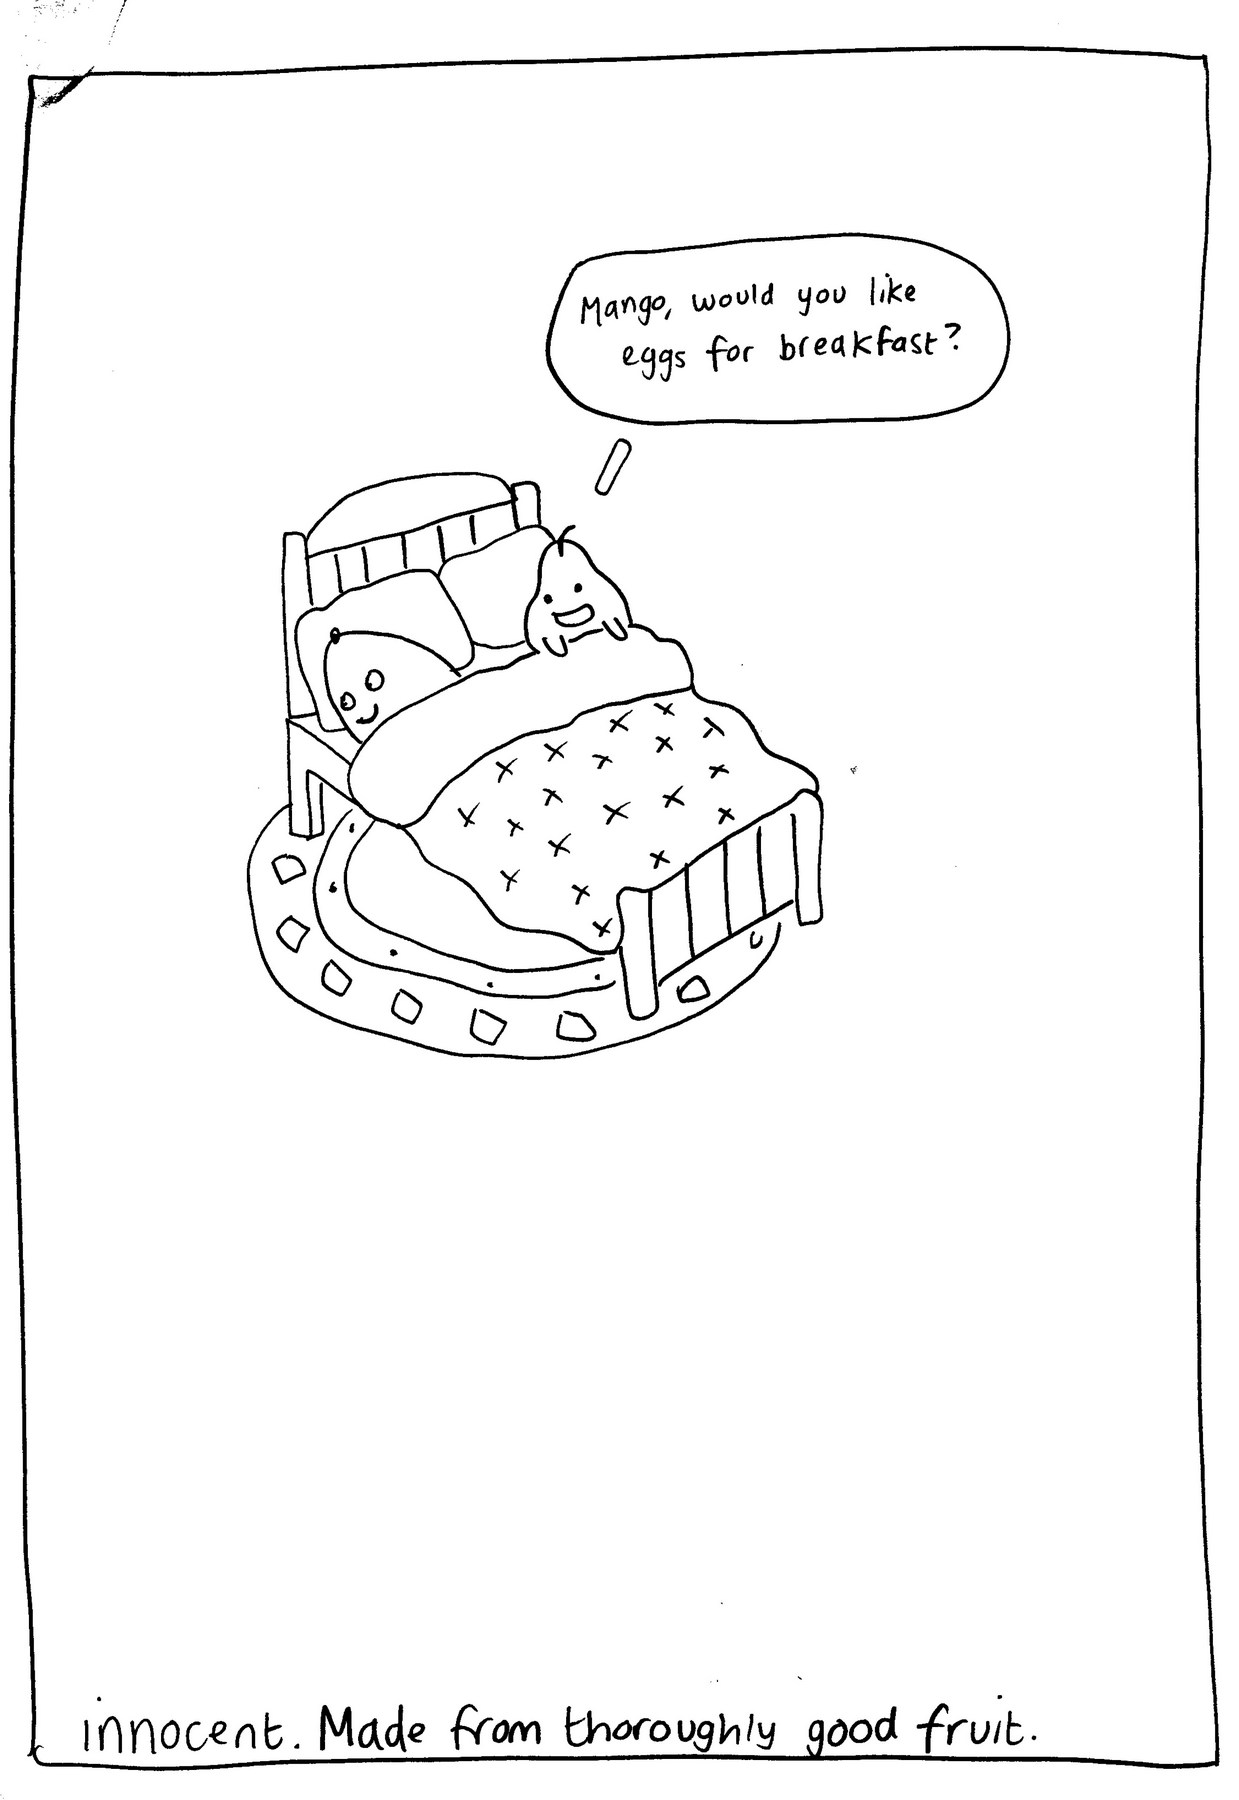 Mango, would you like
eggs for breakfast?
innocent. Made from thoroughly good fruit.